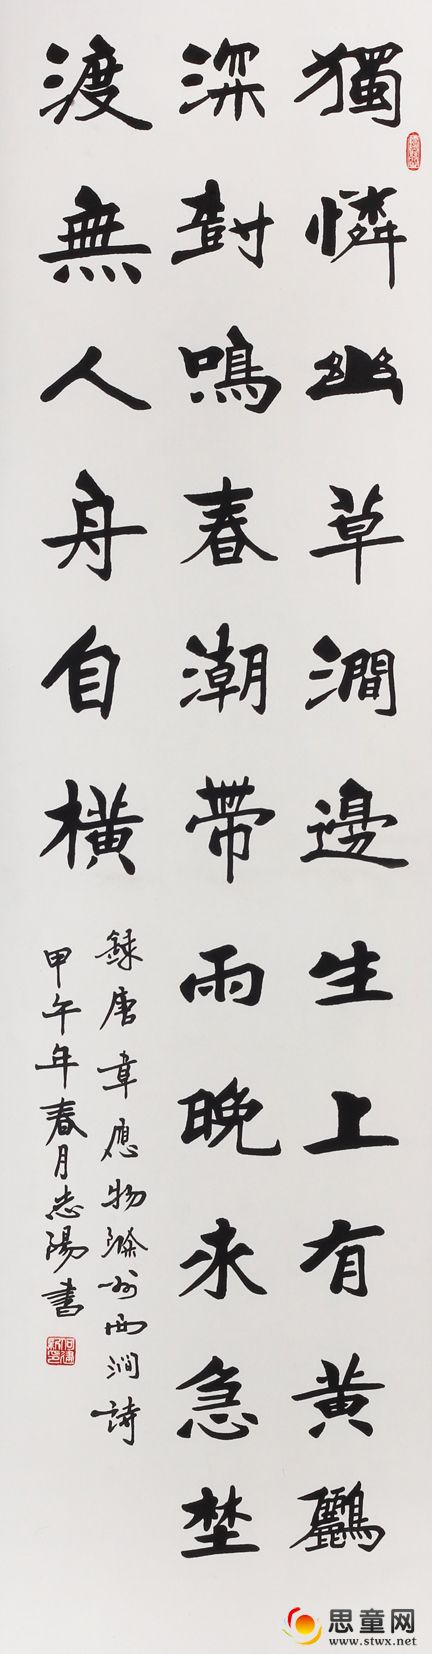 獨憐幽草澗邊生上有黃鸝
深尌鳴春潮帶雨晚来急埜
渡無人舟自橫
録唐韋應物滁州西澗詩
甲午年春月志陽書
思童网
www.stwx.net